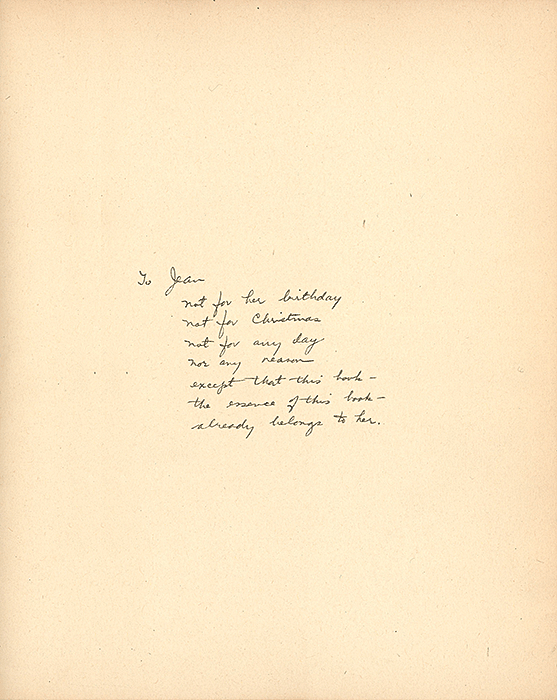 To Jean
not for her birthday
not for Christmas
not for any day
nor any reason
except that this book –
the essence of this book –
already belongs to her.